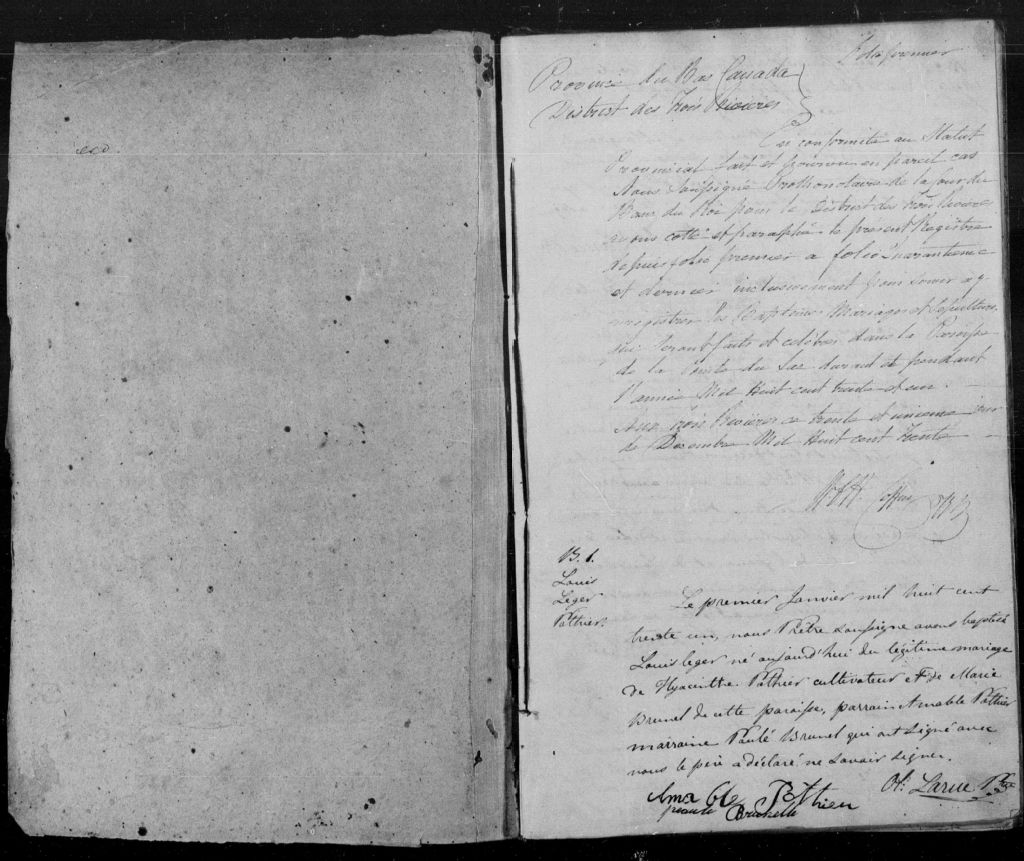 folio premier
Province du Bas Canada
District des Trois Rivieres
En conformité au Statut
Provincial fait et pourvu en pareil cas
Nous Soussigné Prothonotaire de la Cour du
Banc du Roi pour le District des Trois Rivieres
avons cotté et paraphé le present Registre
depuis folio premier a folio Quarantieme
et dernier inclusivement pour servir a y
enregistrer les Baptêmes Mariages et Sépultures
qui seront faits et célébrés dans la Paroisse
de la Pointe du Lac durant et pendant
l'année Mil Huit cent trente et un. —
Aux Trois Rivieres ce trente et unieme jour
de Décembre Mil Huit cent Trente —
Coffin
B. 1.
Louis
Léger
Pothier.
Le premier Janvier mil huit cent
trente un, nous Prêtre Soussigné avons baptisé
Louis léger né aujourd'hui du légitime mariage
de Hyacinthe Pothier cultivateur et de Marie
Brunel de cette paroisse, parrain Amable Pothier
marraine Paule Brunel qui ont signé avec
nous le père a déclaré ne savoir signer.
Ama ble Pothier
Ol: Larue Ptre